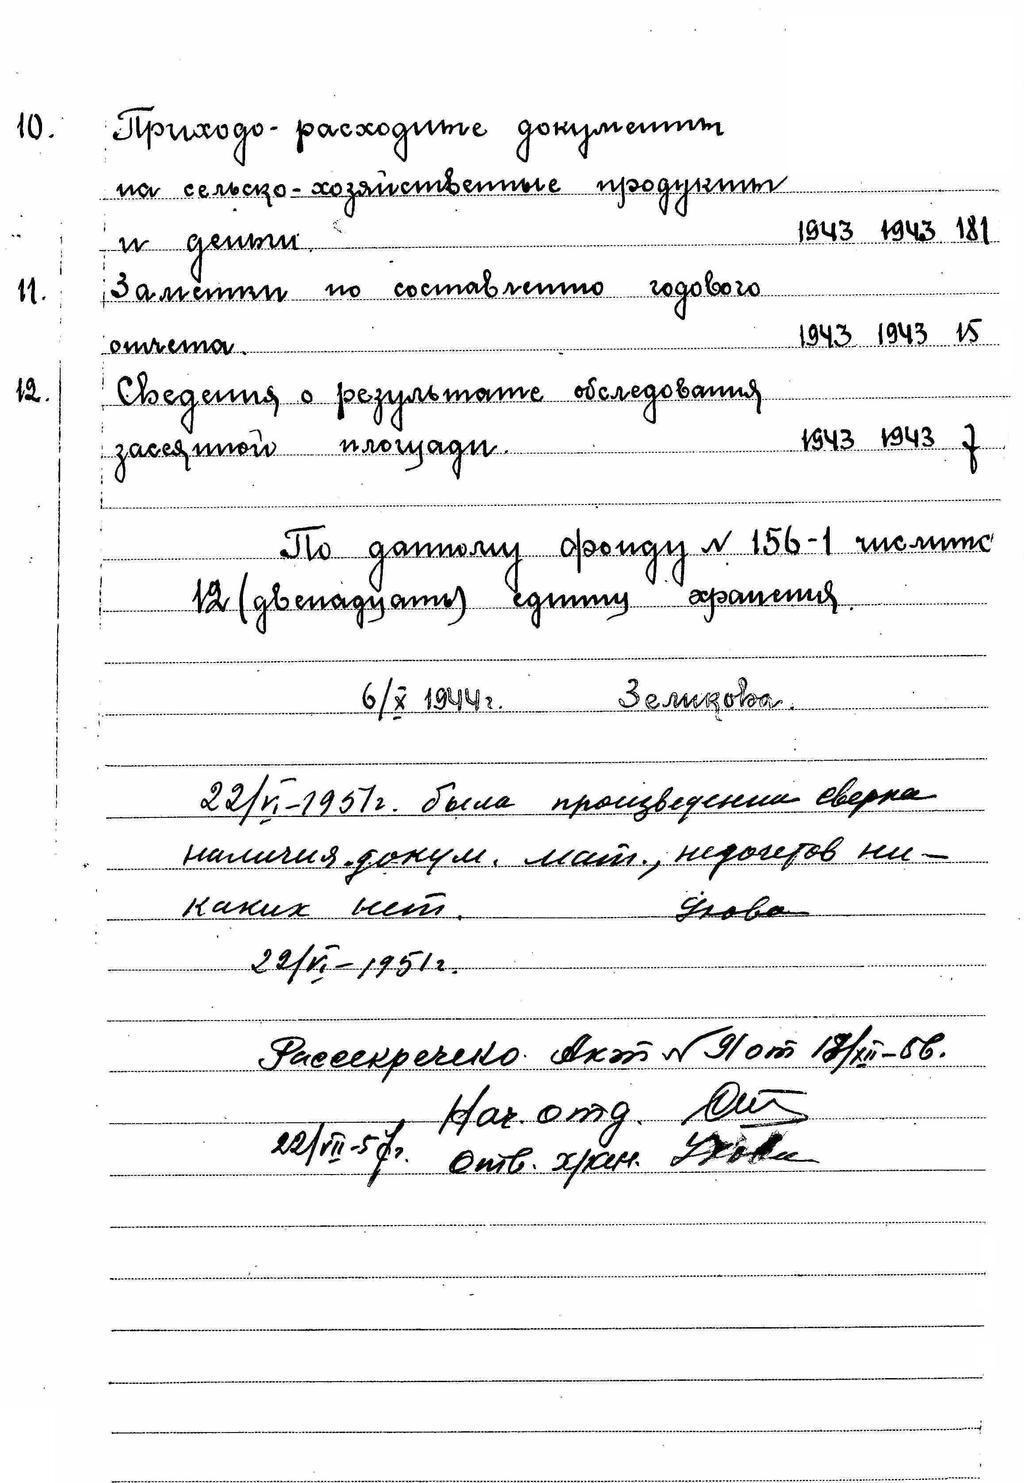 10. Приходо-расходные документы
на сельско-хозяйственные продукты
и деньги. 1943 1943 181
11. Заметки по составлению годового
отчета. 1943 1943 15
12. Сведения о результате обследования
засеянной площади. 1943 1943 7
По данному фонду № 156-1 числитс
12 (двенадцать) единиц хранения.
6/X 1944г. Зеликова.
22/VI-1951г. была произведенна сверка
наличия докум. мат., недочетов ни-
каких нет. Ухова
22/VI-1951г.
Рассекречено. Акт № 91 от 18/XII-56.
Нач. отд.
22/VII-57г. Отв. хран. Ухова